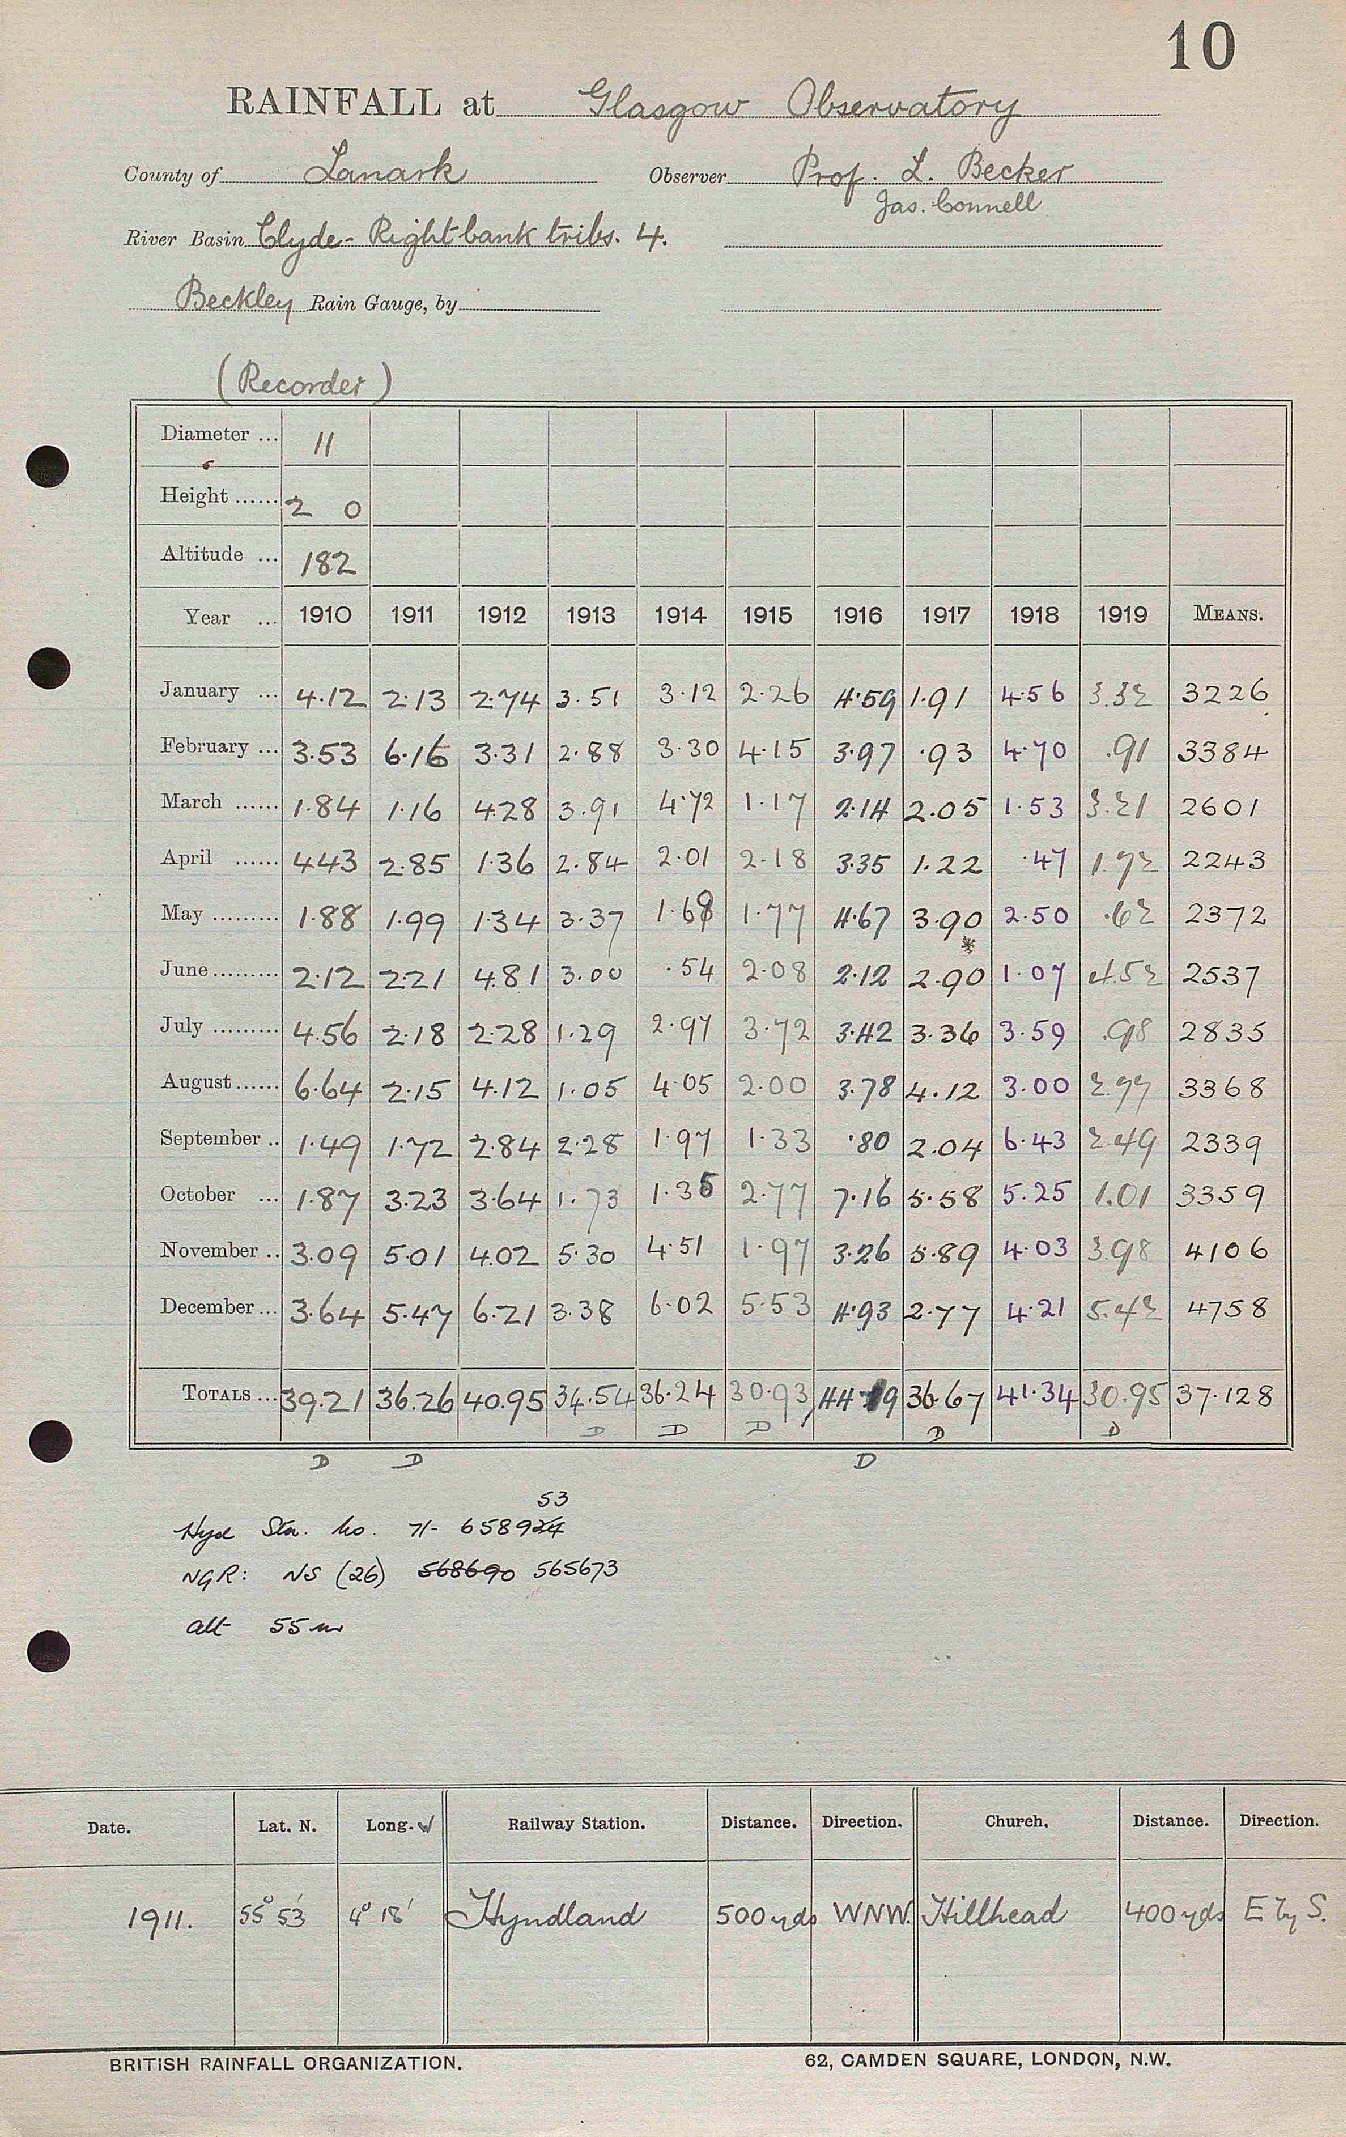 10
RAINFALL at Glasgow Observatory
County of Lanark Observer Prof. L. Becker
Jas. Connell
River Basin Clyde - Right bank tribs. 4.
Beckley Rain Gauge, by
(Recorder)
Diameter ... 11
Height ...... 2 0
Altitude ... 182
Year ... 1910 1911 1912 1913 1914 1915 1916 1917 1918 1919 MEANS.
January ... 4.12 2.13 2.74 3.51 3.12 2.26 4.59 1.91 4.56 3.32 3226
February ... 3.53 6.16 3.31 2.88 3.30 4.15 3.97 .93 4.70 .91 3384
March ...... 1.84 1.16 4.28 3.91 4.72 1.17 2.14 2.05 1.53 3.21 2601
April ...... 4.43 2.85 1.36 2.84 2.01 2.18 3.35 1.22 .47 1.72 2243
May ......... 1.88 1.99 1.34 3.37 1.68 1.77 4.67 3.90 2.50 .62 2372
June ......... 2.12 2.21 4.81 3.00 .54 2.08 2.12 2.90 1.07 4.52 2537
July ......... 4.56 2.18 2.28 1.29 2.97 3.72 3.42 3.36 3.59 .98 2835
August ...... 6.64 2.15 4.12 1.05 4.05 2.00 3.78 4.12 3.00 2.77 3368
September .. 1.49 1.72 2.84 2.28 1.97 1.33 .80 2.04 6.43 2.49 2339
October ... 1.87 3.23 3.64 1.73 1.35 2.77 7.16 5.58 5.25 1.01 3359
November .. 3.09 5.01 4.02 5.30 4.51 1.97 3.26 5.89 4.03 3.98 4106
December ... 3.64 5.47 6.21 3.38 6.02 5.53 4.93 2.77 4.21 5.42 4758
TOTALS ... 39.21 36.26 40.95 34.54 36.24 30.93 44.19 36.67 41.34 30.95 37.128
D D D D D
D D D
53
Hyd Stn. No. 71- 658924
NGR: NS (26) 568690 565673
alt 55 m
Date. Lat. N. Long. W Railway Station. Distance. Direction. Church. Distance. Direction.
1911. 55° 53' 4° 18' Hyndland 500 yds WNW. Hillhead 400 yds E by S.
BRITISH RAINFALL ORGANIZATION. 62, CAMDEN SQUARE, LONDON, N.W.